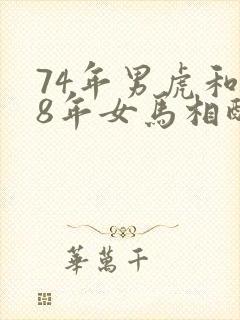 74年男虎和
8年女馬相
華萬千